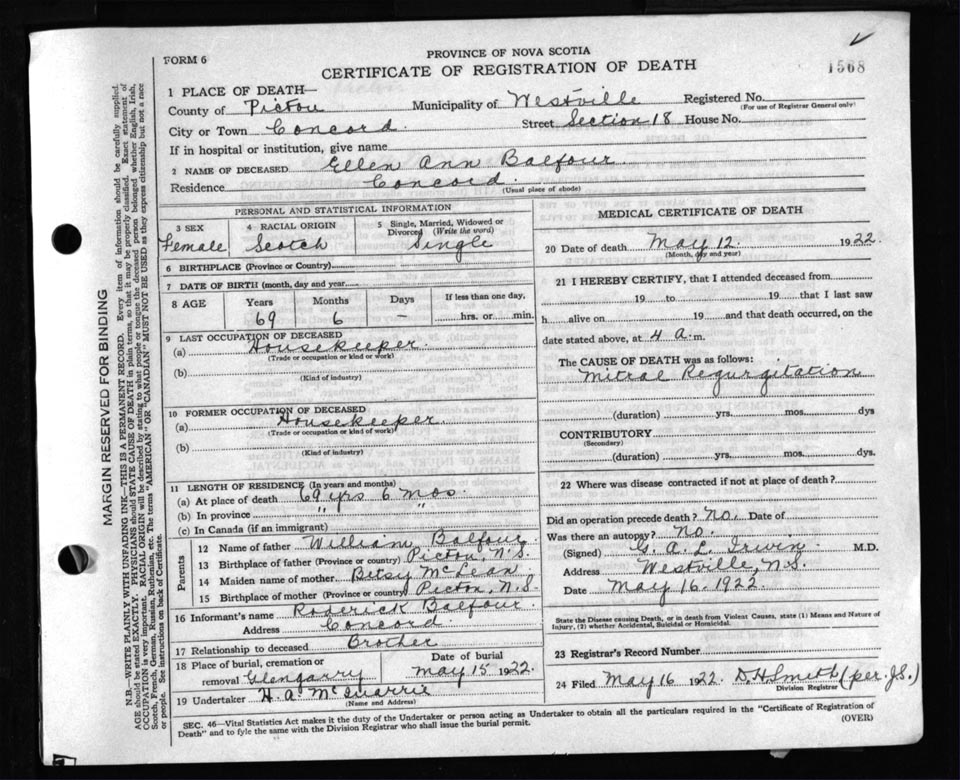 FORM 6
PROVINCE OF NOVA SCOTIA
CERTIFICATE OF REGISTRATION OF DEATH
1568
1 PLACE OF DEATH—
County of Pictou Municipality of Westville Registered No.
(For use of Registrar General only)
City or Town Concord. Street Section 18 House No.
If in hospital or institution, give name
2 NAME OF DECEASED Ellen Ann Balfour.
Residence Concord.
(Usual place of abode)
PERSONAL AND STATISTICAL INFORMATION
3 SEX
Female
4 RACIAL ORIGIN
Scotch
5 Single, Married, Widowed or
Divorced (Write the word)
Single
6 BIRTHPLACE (Province or Country)
7 DATE OF BIRTH (month, day and year)
8 AGE Years Months Days If less than one day,
69 6 — hrs. or min.
9 LAST OCCUPATION OF DECEASED
(a) Housekeeper.
(Trade or occupation or kind or work)
(b)
(Kind of industry)
10 FORMER OCCUPATION OF DECEASED
(a) Housekeeper
(Trade or occupation or kind of work)
(b)
(Kind of industry)
11 LENGTH OF RESIDENCE (In years and months)
(a) At place of death 69 yrs 6 mos.
(b) In province " "
(c) In Canada (if an immigrant)
Parents
12 Name of father William Balfour
13 Birthplace of father (Province or country) Pictou, N.S.
14 Maiden name of mother Betsy McLean.
15 Birthplace of mother (Province or country) Pictou, N.S.
16 Informant's name Roderick Balfour
Address Concord.
17 Relationship to deceased Brother
18 Place of burial, cremation or
removal Glengarry
Date of burial
May 15 1922.
19 Undertaker H. A. McQuarrie
(Name and Address)
MEDICAL CERTIFICATE OF DEATH
20 Date of death May 12. 1922.
(Month, day and year)
21 I HEREBY CERTIFY, that I attended deceased from
19 to 19 that I last saw
h alive on 19 and that death occurred, on the
date stated above, at 4 a. m.
The CAUSE OF DEATH was as follows:
Mitral Regurgitation
(duration) yrs. mos. dys
CONTRIBUTORY
(Secondary)
(duration) yrs. mos. dys.
22 Where was disease contracted if not at place of death?
Did an operation precede death? No. Date of
Was there an autopsy? No.
(Signed) G. A. L. Irwin M.D.
Address Westville, N.S.
Date May 16, 1922.
State the Disease causing Death, or in death from Violent Causes, state (1) Means and Nature of
Injury, (2) whether Accidental, Suicidal or Homicidal.
23 Registrar's Record Number
24 Filed May 16 1922. D.H. Smith (per J.S.)
Division Registrar
SEC. 46—Vital Statistics Act makes it the duty of the Undertaker or person acting as Undertaker to obtain all the particulars required in the "Certificate of Registration of
Death" and to fyle the same with the Division Registrar who shall issue the burial permit.
(OVER)
MARGIN RESERVED FOR BINDING
N.B.—WRITE PLAINLY WITH UNFADING INK—THIS IS A PERMANENT RECORD. Every item of information should be carefully supplied.
AGE should be stated EXACTLY. PHYSICIANS should STATE CAUSE OF DEATH in plain terms, so that it may be properly classified. Exact statement of
OCCUPATION is very important. RACIAL ORIGIN will be described by stating to what people or tongue the deceased person belonged whether English, Irish,
Scotch, French, German, Russian, Ruthenian, etc. The terms "AMERICAN" OR "CANADIAN" MUST NOT BE USED as they express citizenship but not a race
or people. See instructions on back of Certificate.